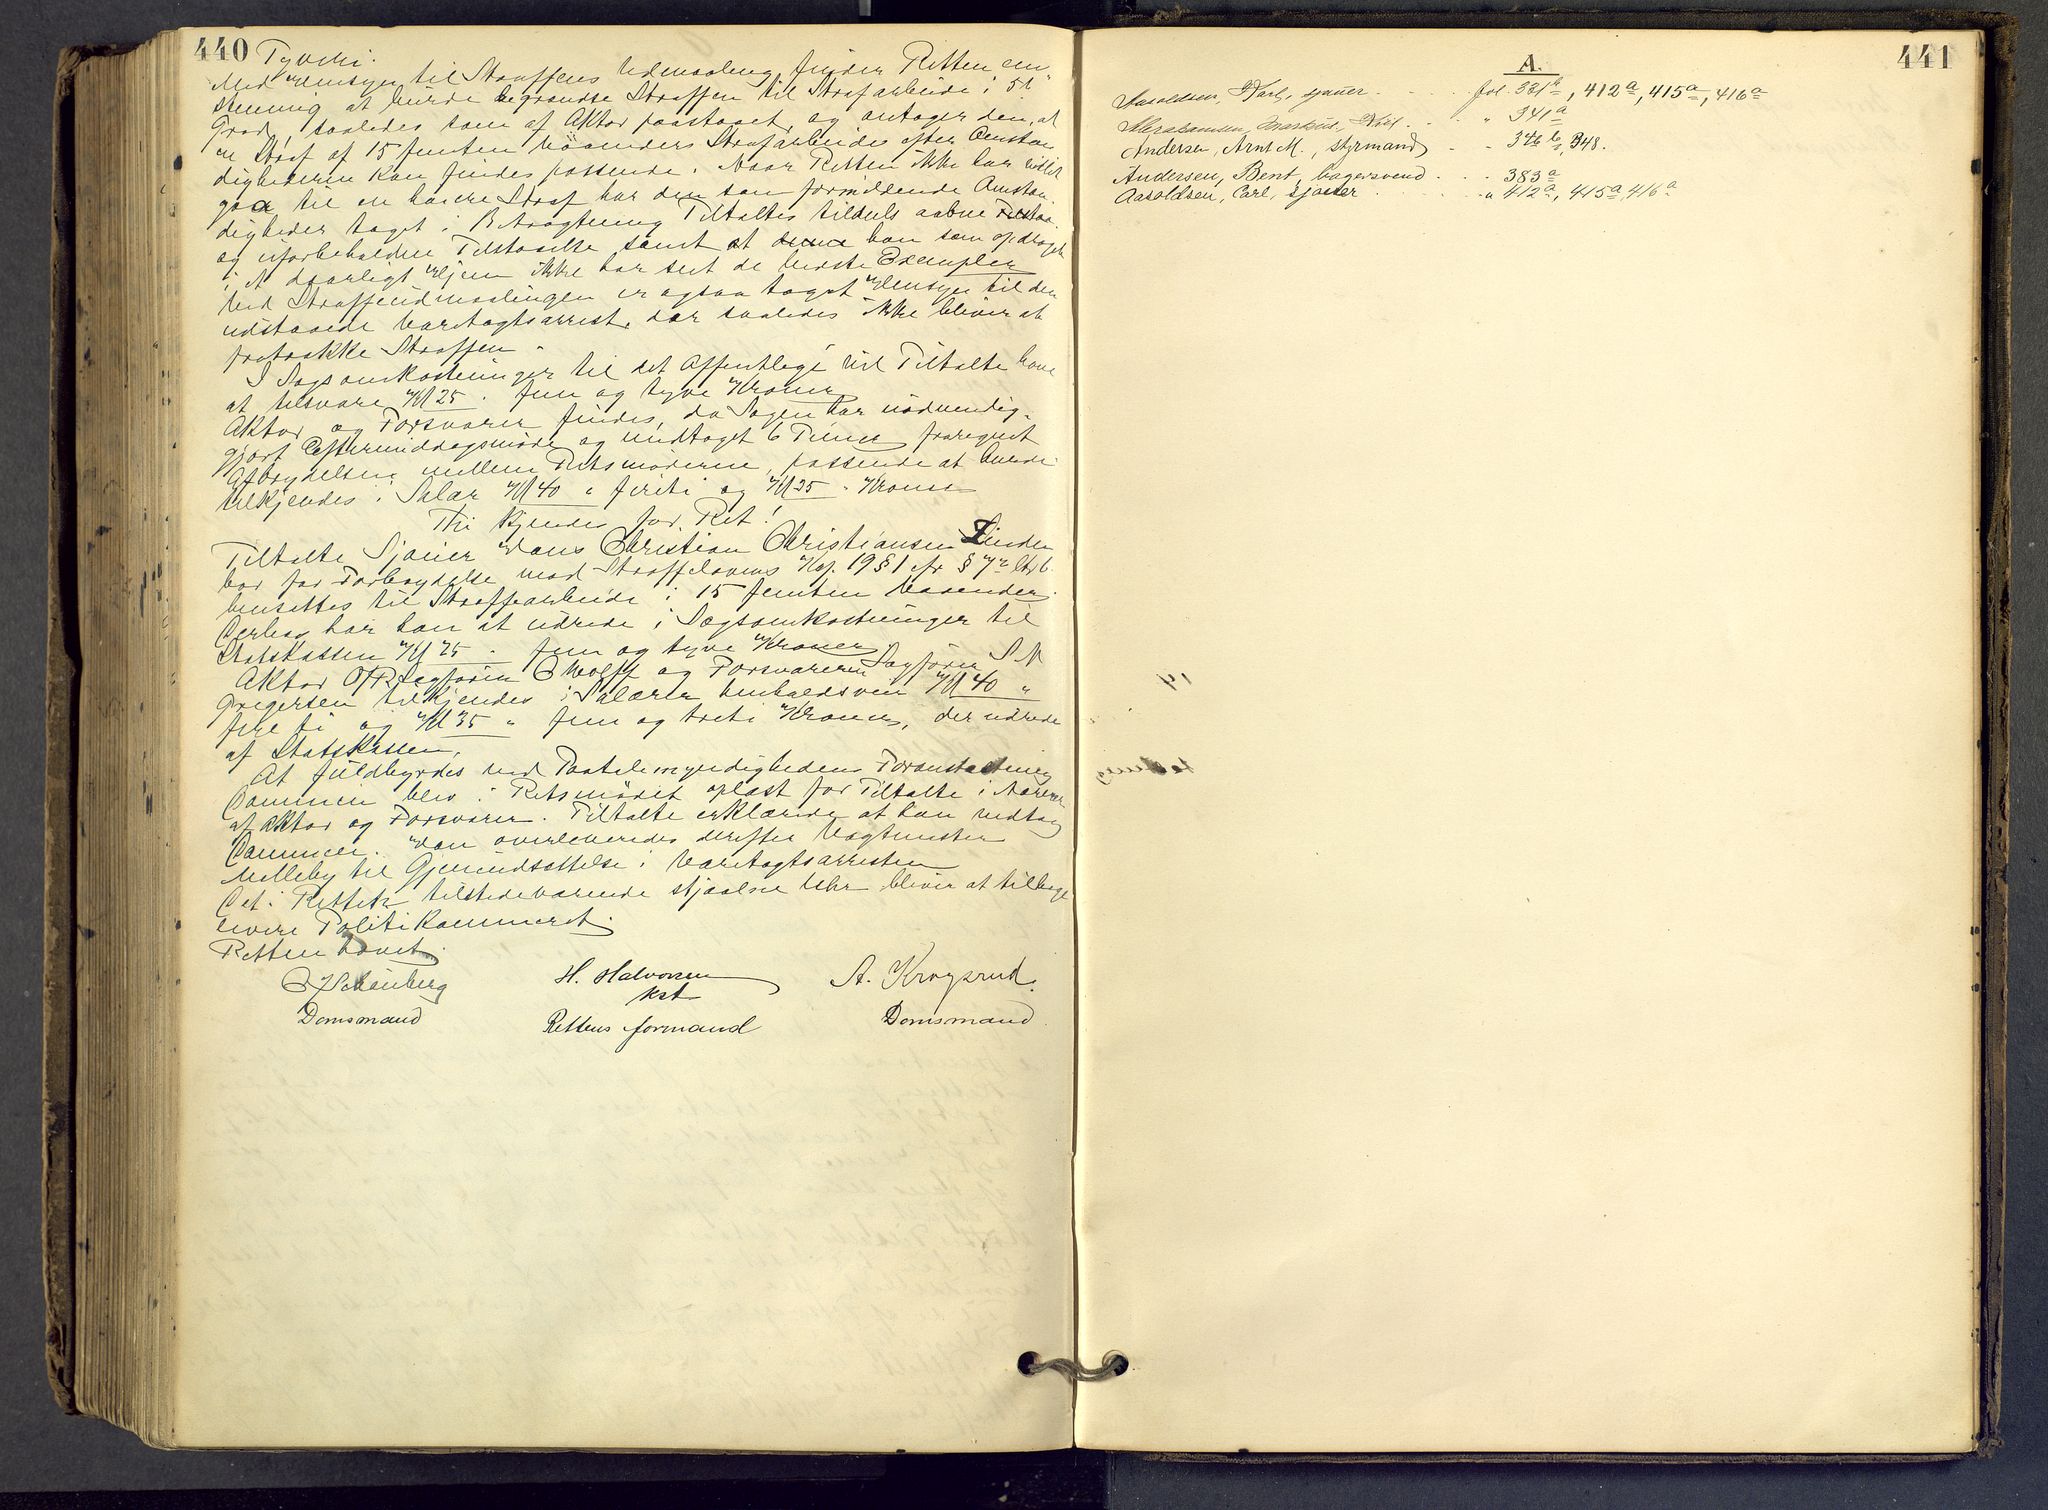 440
Tyveri.
Med Hensyn til Straffens Udmaaling finder Retten en
stemmig at burde begrændse Straffen til Strafarbeide i 5te
Grad, saaledes som af Aktor paastaaet, og antager den, at
en Straf af 15 femten Maaneders Strafarbeide efter Omstæn
dighederne kan findes passende. Naar Retten ikke har villet
gaa til en høiere Straf har den som formildende Omstæn
digheder taget i Betragtning Tiltaltes tildels aabne
og uforbeholdne Tilstaaelse samt at han som opdraget
i et daarligt Hjem ikke har seet de bedste Exempler
Ved Straffeudmaalingen er ogsaa taget Hensyn til den
udstaaede Varetægtsarrest, der saaledes ikke bliver at
fratrække Straffen.
I Sagsomkostninger til det Offentlige vil Tiltalte have
at tilsvare Kr 25 . fem og tyve Kroner
Aktor og Forsvarer findes, da Sagen har nødvendig-
gjort Eftermiddagsmøde og medtaget 6 Timer fraregnet
Afbrydelsen mellem Retsmøderne, passende at burde
tilkjendes i Salær Kr 40 " firti og Kr 35 . Kroner
Thi kjendes for Ret!
Tiltalte Sjauer Hans Christian Christiansen Linden
bør for Forbrydelse mod Straffelovens Kap. 19 § 1 cfr § 7 litr b
hensættes til Strafarbeide i 15 femten Maaneder.
Derhos bør han at udrede i Sagsomkostninger til
Statskassen Kr 25 . fem og tyve Kroner
Aktor O/R Sagfører Wolff og Forsvareren Sagfører S M
Gregersen tilkjendes i Salærer henholdsvis Kr 40 "
firti og Kr 35 " fem og treti Kroner, der udrede
af Statskassen.
At fuldbyrdes ved Paatalemyndighedens Foranstaltning
Dommen blev i Retsmødet oplæst for Tiltalte i Nærvær
af Aktor og Forsvarer. Tiltalte erklærede at han vedtog
Dommen. Han overleveredes derefter Vagtmester
Melleby til Gjenindsættelse i Varetægtsarresten
Det i Retten tilstedeværende stjaalne Uhr bliver at tilbage
levere Politikammeret.
Retten hævet.
Schønberg H. Halvorsen A. Krogsrud.
Domsmand kst Domsmand
Rettens formand
441
A.
Aasoldsen, Karl, sjauer . . . . . fol. 331b, 412a, 415a, 416a
Abrahamsen, Markus, . . . " 341a
Andersen, Arnt M., styrmand . . 346b, 348.
Andersen, Bent, bagersvend . . . 383a
Aasoldsen, Carl, sjauer . . . . " 412a, 415a, 416a